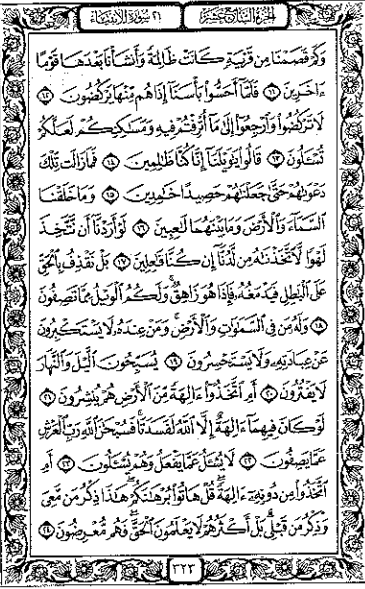 الجزء السابع عشر ٢١ سورة الأنبياء
وَكَمْ قَصَمْنَا مِن قَرْيَةٍ كَانَتْ ظَالِمَةً وَأَنشَأْنَا بَعْدَهَا قَوْمًا
ءَاخَرِينَ ۝١١ فَلَمَّآ أَحَسُّوا۟ بَأْسَنَآ إِذَا هُم مِّنْهَا يَرْكُضُونَ ۝١٢
لَا تَرْكُضُوا۟ وَٱرْجِعُوٓا۟ إِلَىٰ مَآ أُتْرِفْتُمْ فِيهِ وَمَسَٰكِنِكُمْ لَعَلَّكُمْ
تُسْـَٔلُونَ ۝١٣ قَالُوا۟ يَٰوَيْلَنَآ إِنَّا كُنَّا ظَٰلِمِينَ ۝١٤ فَمَا زَالَت تِّلْكَ
دَعْوَىٰهُمْ حَتَّىٰ جَعَلْنَٰهُمْ حَصِيدًا خَٰمِدِينَ ۝١٥ وَمَا خَلَقْنَا
ٱلسَّمَآءَ وَٱلْأَرْضَ وَمَا بَيْنَهُمَا لَٰعِبِينَ ۝١٦ لَوْ أَرَدْنَآ أَن نَّتَّخِذَ
لَهْوًا لَّٱتَّخَذْنَٰهُ مِن لَّدُنَّآ إِن كُنَّا فَٰعِلِينَ ۝١٧ بَلْ نَقْذِفُ بِٱلْحَقِّ
عَلَى ٱلْبَٰطِلِ فَيَدْمَغُهُۥ فَإِذَا هُوَ زَاهِقٌ ۚ وَلَكُمُ ٱلْوَيْلُ مِمَّا تَصِفُونَ
۝١٨ وَلَهُۥ مَن فِى ٱلسَّمَٰوَٰتِ وَٱلْأَرْضِ ۚ وَمَنْ عِندَهُۥ لَا يَسْتَكْبِرُونَ
عَنْ عِبَادَتِهِۦ وَلَا يَسْتَحْسِرُونَ ۝١٩ يُسَبِّحُونَ ٱلَّيْلَ وَٱلنَّهَارَ
لَا يَفْتُرُونَ ۝٢٠ أَمِ ٱتَّخَذُوٓا۟ ءَالِهَةً مِّنَ ٱلْأَرْضِ هُمْ يُنشِرُونَ ۝٢١
لَوْ كَانَ فِيهِمَآ ءَالِهَةٌ إِلَّا ٱللَّهُ لَفَسَدَتَا ۚ فَسُبْحَٰنَ ٱللَّهِ رَبِّ ٱلْعَرْشِ
عَمَّا يَصِفُونَ ۝٢٢ لَا يُسْـَٔلُ عَمَّا يَفْعَلُ وَهُمْ يُسْـَٔلُونَ ۝٢٣ أَمِ
ٱتَّخَذُوا۟ مِن دُونِهِۦٓ ءَالِهَةً ۖ قُلْ هَاتُوا۟ بُرْهَٰنَكُمْ ۖ هَٰذَا ذِكْرُ مَن مَّعِىَ
وَذِكْرُ مَن قَبْلِى ۗ بَلْ أَكْثَرُهُمْ لَا يَعْلَمُونَ ٱلْحَقَّ ۖ فَهُم مُّعْرِضُونَ ۝٢٤
٣٢٣